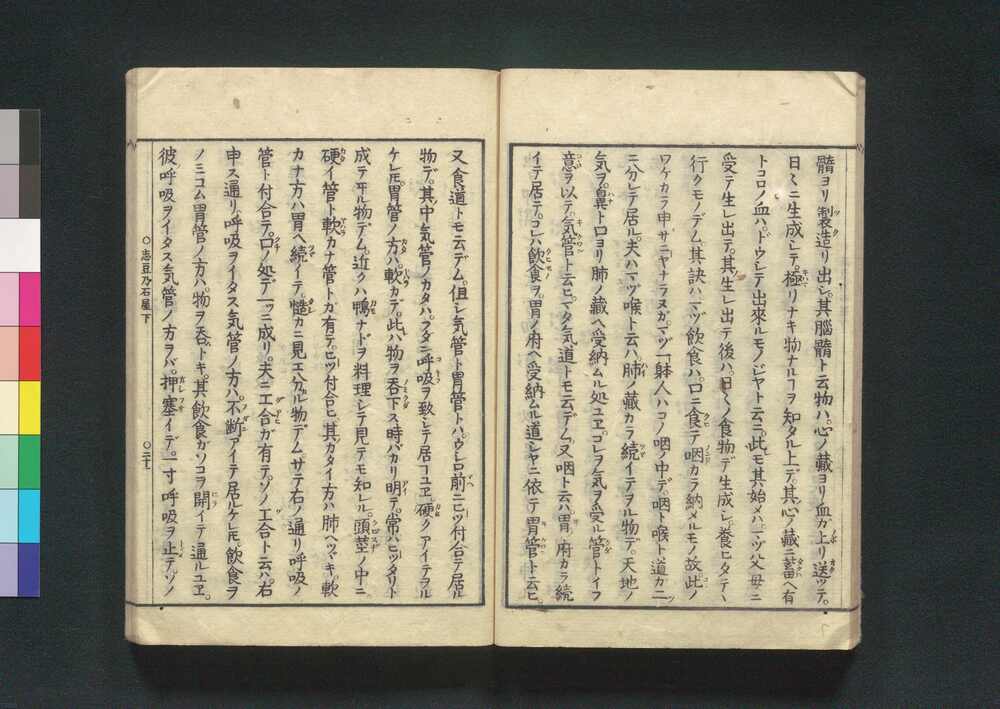 髓ヨリ製造リ出シ。其腦髓ト云物ハ。心ノ藏ヨリ血ガ上リ送ツテ。
日々ニ生成シテ。極リナキ物ナルヿヲ知タル上デ。其心ノ藏ニ蓄ヘ有
トコロノ血ハ。ドウシテ出來ルモノジヤト云ニ。此モ其始メハ一マヅ父母ニ
受テ生レ出テ。其生レ出テ後ハ。日々ノ食物デ生成シ。養ヒタテヽ
行クモノデム。其訣ハマヅ飲食ハ。口ニ食テ咽カラ納メルモノ故。此ノ
ワケカラ申サニヤナラヌガ。マヅ一躰人ハコノ咽ノ中デ。咽ト喉ト道カ二ツ
ニ分レテ居ル。夫ハマヅ喉ト云ハ。肺ノ藏カラ続イテヲル物デ。天地ノ
気ヲ。鼻ト口ヨリ肺ノ藏ヘ受納ムル処ユヱ。コレヲ気ヲ受ル管トイフ
意ヲ以テ。気管ト云ヒ。マタ気道トモ云デム。又咽ト云ハ。胃ノ府カラ続
イテ居テ。コレハ飲食ヲ。胃ノ府ヘ受納ムル道ジヤニ依テ胃管ト云ヒ。
又食道トモ云デム。但シ気管ト胃管トハ。ウシロ前ニヒツ付合テ居ル
物デ。其中気管ノカタハ。フダンニ呼吸ヲ致シテ居ルユヱ。硬クアイテヲル
ケレ𪜈。胃管ノ方ハ。軟カデ。此ハ物ヲ呑下ス時バカリ明テ。常ハヒツタリト
成テヰル物デム。近クハ鴨ナドヲ料理シテ見テモ知レル。頭莖ノ中ニ
硬イ管ト軟カナ管トガ有テ。ヒツ付合ヒ。其カタイ方ハ肺ヘツヾキ。軟
カナ方ハ胃ヘ続イテ。慥カニ見エ分ル物デム。サテ右ノ通リ呼吸ノ
管ト付合テ。口ノ処デ一ツニ成リ。夫ニ工合ガ有テ。ソノ工合ト云ハ。右
申ス通リ。呼吸ヲイタス気管ノ方ハ。不断アイテ居ルケレ𪜈。飲食ヲ
ノミコム胃管ノ方ハ。物ヲ呑トキ。其飲食ガソコヲ開イテ通ルユヱ。
彼ノ呼吸ヲイタス気管ノ方ヲバ。押塞イデ。一寸呼吸ヲ止テ。ソノ
○志豆乃石屋下
○二十